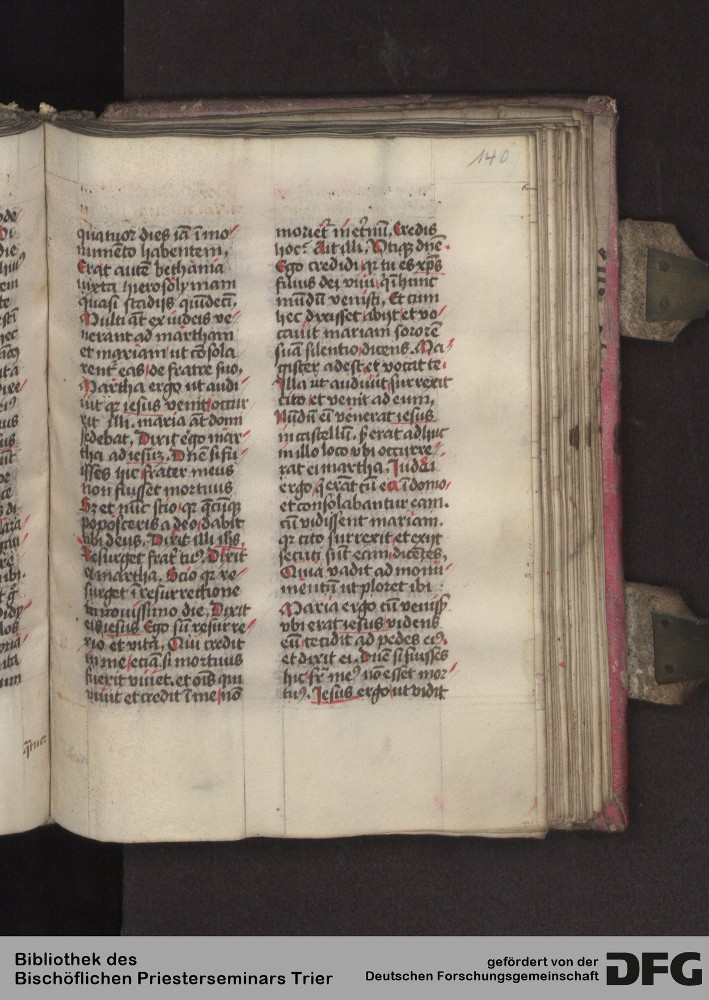 140
quatuor dies iā ī mo
numēto habentem,
Erat autē bethania
iuxta hierosolymam
quasi stadijs quīdecī.
Multi āt ex iudeis ve
nerant ad martham
et mariam ut cōsola
rent᷑ eas de fratre suo,
Martha ergo ut audi
uit qꝛ iesus venit occur
rit illi. maria āt domi
sedebat. Dixit e͛go mar
tha ad iesuꝫ. Dn̄e si fu
isses hic frater meus
non fuisset mortuus
Sꝫ et nūc scio qꝛ q̄cūqꝫ
poposceris a deo dabit
tibi deus. Dixit illi ih̄s,
Resurget frat͛ tuꝰ. Dixit
ei martha. Scio qꝛ re
surget ī resurrectione
in nouissimo die. Dixit
ei iesus Ego sū resur re
xio et vita, Qui credit
in me etiā si mortuus
fuerit viuet. et oīs qui
viuit et credit ī me nō
moriet᷑ in et͛nū, Credis
hoc. Ait illi. Vtiqꝫ dn̄e.
Ego credidi qꝛ tu es xp̄s
filius dei viui qī hunc
mūdū venisti, Et cum
hec dixisset abijt et vo
cauit mariam sororē
suā silentio dicens. Ma
gister adest et vocat te
Illa ut audiuit surrexit
cito et venit ad eum,
Nūdū eī venerat iesus
in castellū. s͛ erat adhuc
in illo loco vbi occurre
rat ei martha. Iudei
ergo q̇ erāt cū ea ī domo
et consolabantur eam.
cū vidissent mariam.
qꝛ cito surrexit et exijt
secuti sūt eam dicētes,
Quia vadit ad monu
mentū ut ploret ibi
Maria ergo cū venissꝫ
vbi erat iesus videns
eū cecidit ad pedes eiꝰ.
et dixit ei. Dn̄e si fuisses
hic fr̄ meꝰ nō esset mor
tuꝰ. Iesus ergo ut vidit
Bibliothek des
Bischöflichen Priesterseminars Trier
gefördert von der
Deutschen Forschungsgemeinschaft
DFG